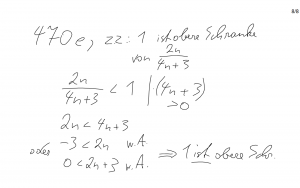 8/8
470e, zz: 1 ist obere Schranke
von 2n/(4n+3)
2n/(4n+3) < 1 | ·(4n+3)
>0
2n < 4n+3
oder -3 < 2n w.A.
0 < 2n+3 w.A. ⇒ 1 ist obere Schr.